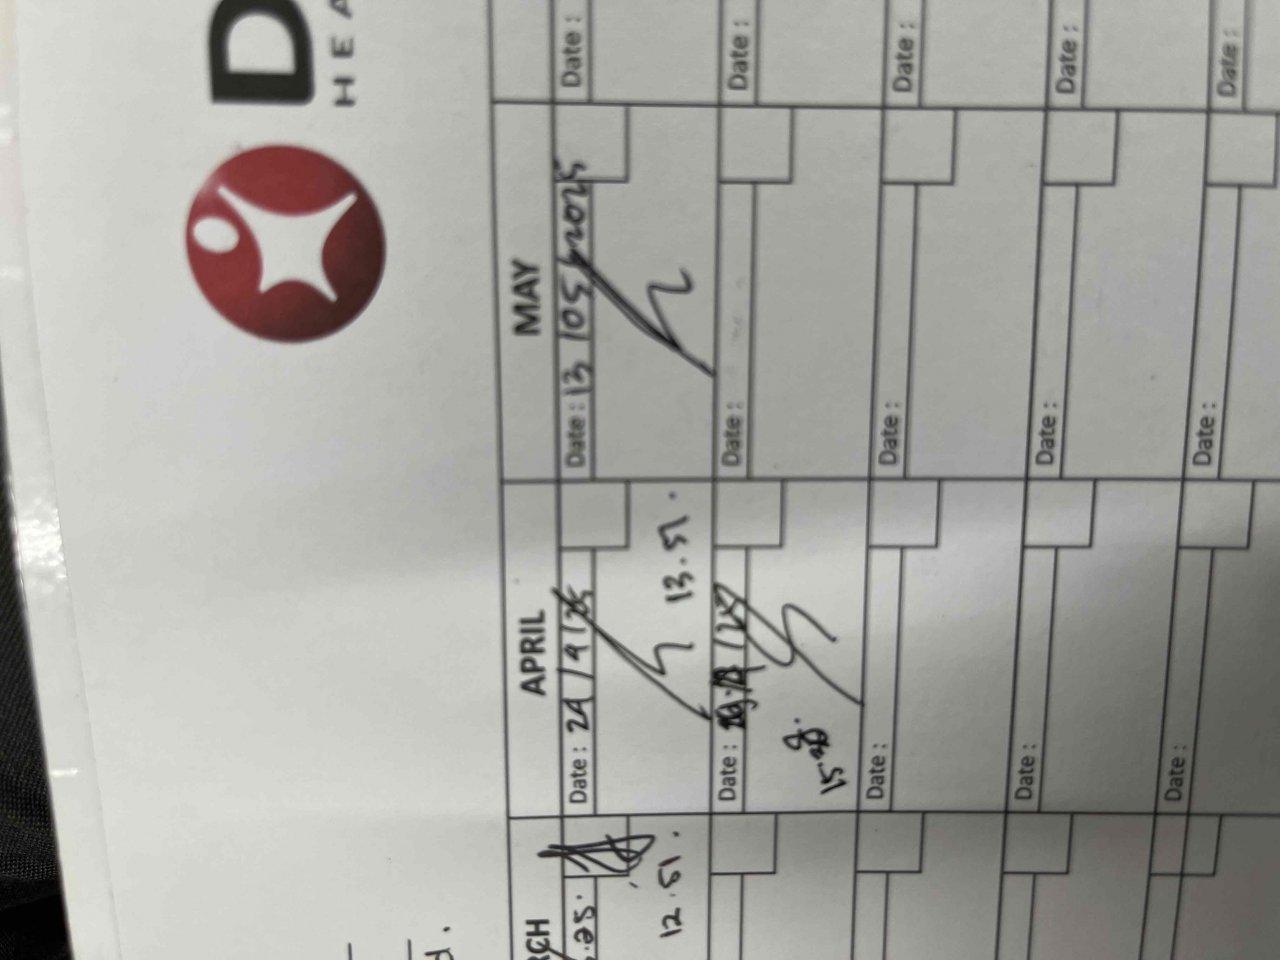 D
HEA
d.
RCH
APRIL
MAY
.25.
Date : 24 / 4 / 25
Date : 13 / 05 / 2025
Date :
12.51.
13.51.
Date :
Date :
Date :
Date :
Date :
Date :
Date :
Date :
Date :
Date :
Date :
Date :